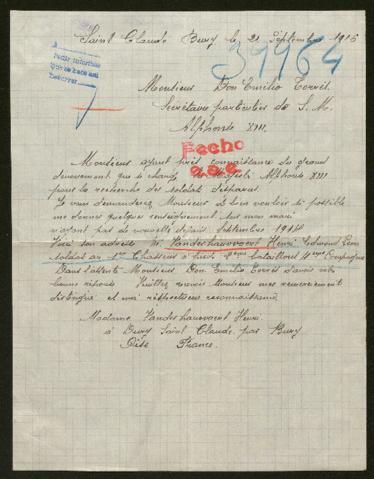 Saint Claude Bury le 21 Septembre 1915
39964
Monsieur Don Emilio Torrès
Secrétaire particulier de S. M.
Alphonse XIII.
Fecho
Monsieur ayant pris connaissance du grand
dévouement que sa Majesté Alphonse XIII
pour la recherche des soldats disparus.
Je viens demander Monsieur de bien vouloir si possible
me donner quelques renseignements sur mon mari
n'ayant pas de nouvelle depuis Septembre 1914
Voici son adresse Mr Vanderhauwaert Henri Edmond Léon
soldat au Chasseurs à pieds Bataillon 4eme Compagnie
Dans l'attente Monsieur Don Emilio Torrès d'avoir une
bonne réponse Veuillez recevoir Monsieur mes remerciements
distingués et ma respectueuse reconnaissance
Madame Vanderhauwaert Henri
à Bury Saint Claude par Bury
Oise France.